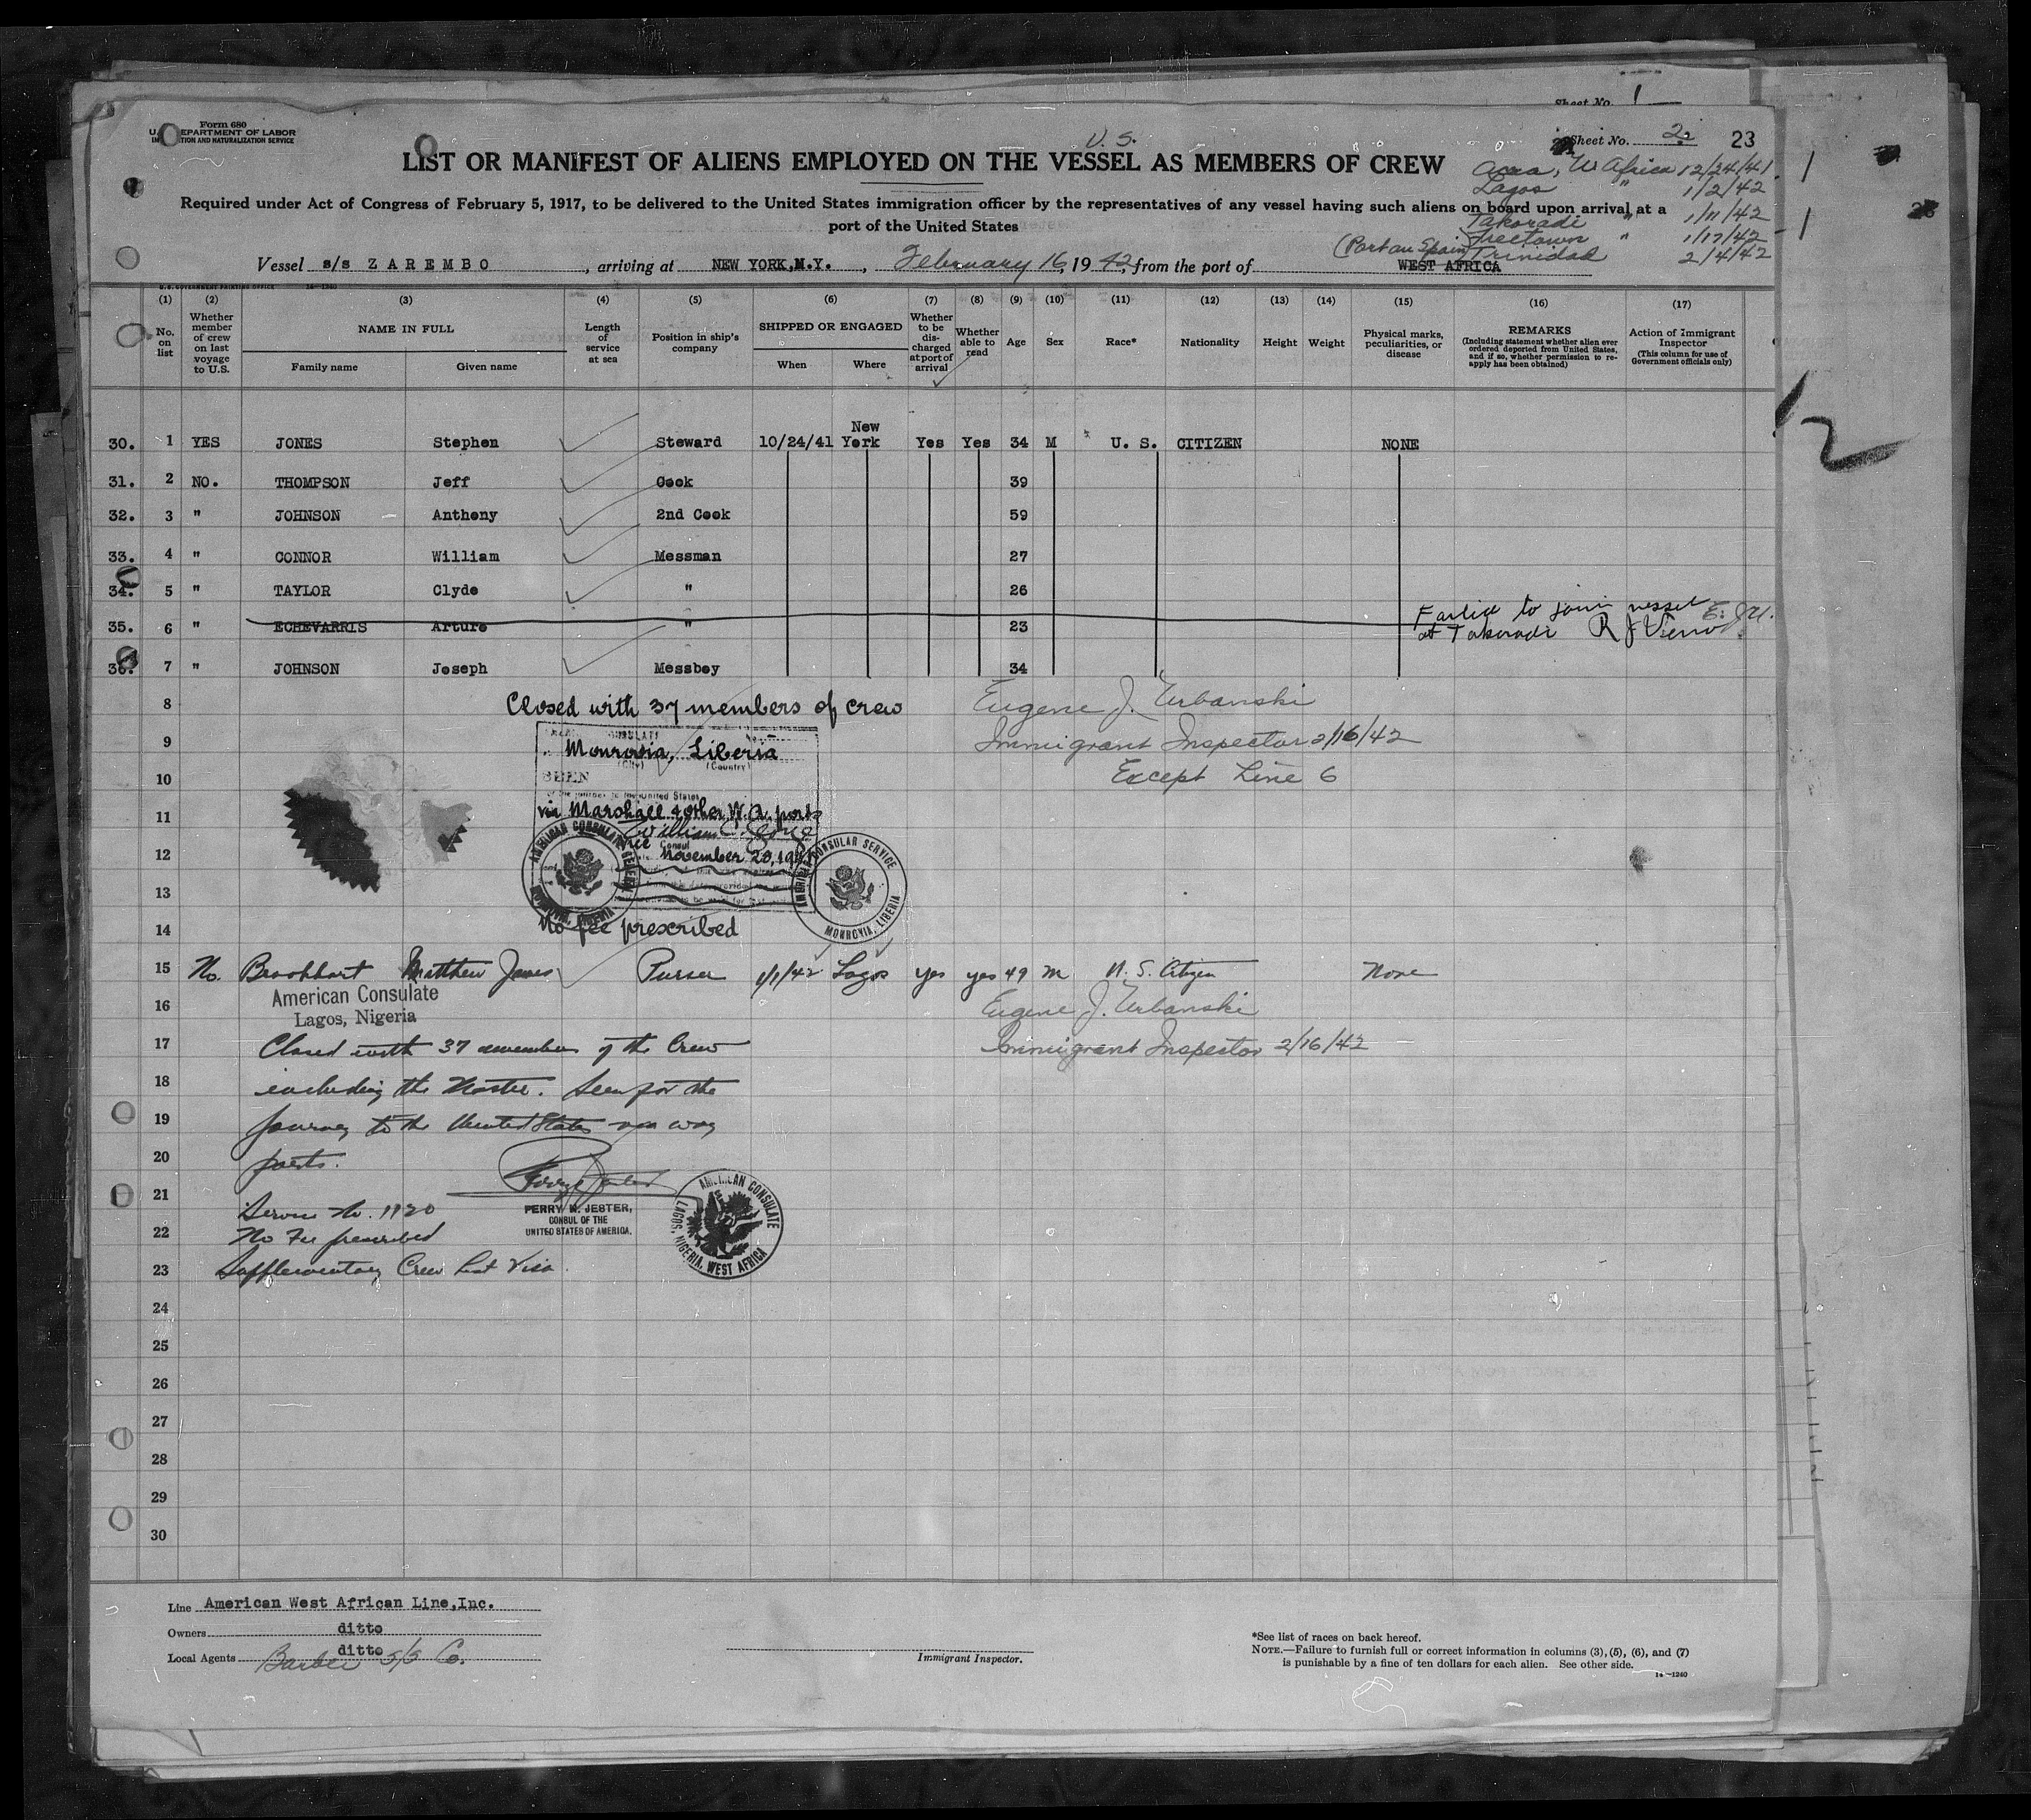 Sheet No. 1
Form 680
U. DEPARTMENT OF LABOR
IM TION AND NATURALIZATION SERVICE
U. S.
Sheet No. 2
23
LIST OR MANIFEST OF ALIENS EMPLOYED ON THE VESSEL AS MEMBERS OF CREW
Accra, W Africa 12/24/41
Lagos " 1/2/42
Required under Act of Congress of February 5, 1917, to be delivered to the United States immigration officer by the representatives of any vessel having such aliens on board upon arrival at a
port of the United States
Takoradi " 1/11/42
Freetown " 1/17/42
(Port au Spain) Trinidad 2/4/42
Vessel s/s ZAREMBO, arriving at NEW YORK, N.Y., February 16, 1942, from the port of WEST AFRICA
U. S. GOVERNMENT PRINTING OFFICE 14-1240
(1) (2) (3) (4) (5) (6) (7) (8) (9) (10) (11) (12) (13) (14) (15) (16) (17)
No. on list
Whether member of crew on last voyage to U.S.
NAME IN FULL
Family name
Given name
Length of service at sea
Position in ship's company
SHIPPED OR ENGAGED
When
Where
Whether to be discharged at port of arrival
Whether able to read
Age
Sex
Race*
Nationality
Height
Weight
Physical marks, peculiarities, or disease
REMARKS
(Including statement whether alien ever ordered deported from United States, and if so, whether permission to reapply has been obtained)
Action of Immigrant Inspector
(This column for use of Government officials only)
30. 1 YES JONES Stephen Steward 10/24/41 New York Yes Yes 34 M U. S. CITIZEN NONE
31. 2 NO. THOMPSON Jeff Cook 39
32. 3 " JOHNSON Anthony 2nd Cook 59
33. 4 " CONNOR William Messman 27
34. 5 " TAYLOR Clyde " 26
35. 6 " ECHEVARRIS Arturo " 23 Failed to join vessel at Takoradi E. J. U.
36. 7 " JOHNSON Joseph Messboy 34
8 Closed with 37 members of crew Eugene J. Urbanski
9 Monrovia, Liberia Immigrant Inspector 2/16/42
(City) (Country)
10 SEEN Except Line 6
of the journey to the United States
11 via Marshall & other W. A. ports
William C. George
Vice Consul
12 November 20, 1941
AMERICAN CONSULATE GENERAL
MONROVIA, LIBERIA
AMERICAN CONSULAR SERVICE
MONROVIA, LIBERIA
13
14 No fee prescribed
15 No. Brookhart Matthew James Purser 1/1/42 Lagos yes yes 49 M U. S. Citizen None
16 American Consulate
Lagos, Nigeria
Eugene J. Urbanski
17 Closed with 37 members of the Crew Immigrant Inspector 2/16/42
18 including the Master. Seen for the
19 journey to the United States via way
20 ports.
21 Service No. 1920
PERRY N. JESTER,
CONSUL OF THE
UNITED STATES OF AMERICA.
AMERICAN CONSULATE
LAGOS, NIGERIA, WEST AFRICA
22 No Fee prescribed
23 Supplementary Crew List Visa
24
25
26
27
28
29
30
Line American West African Line, Inc.
Owners ditto
Local Agents ditto
Barber S/S Co.
Immigrant Inspector.
*See list of races on back hereof.
NOTE.—Failure to furnish full or correct information in columns (3), (5), (6), and (7)
is punishable by a fine of ten dollars for each alien. See other side.
14-1240